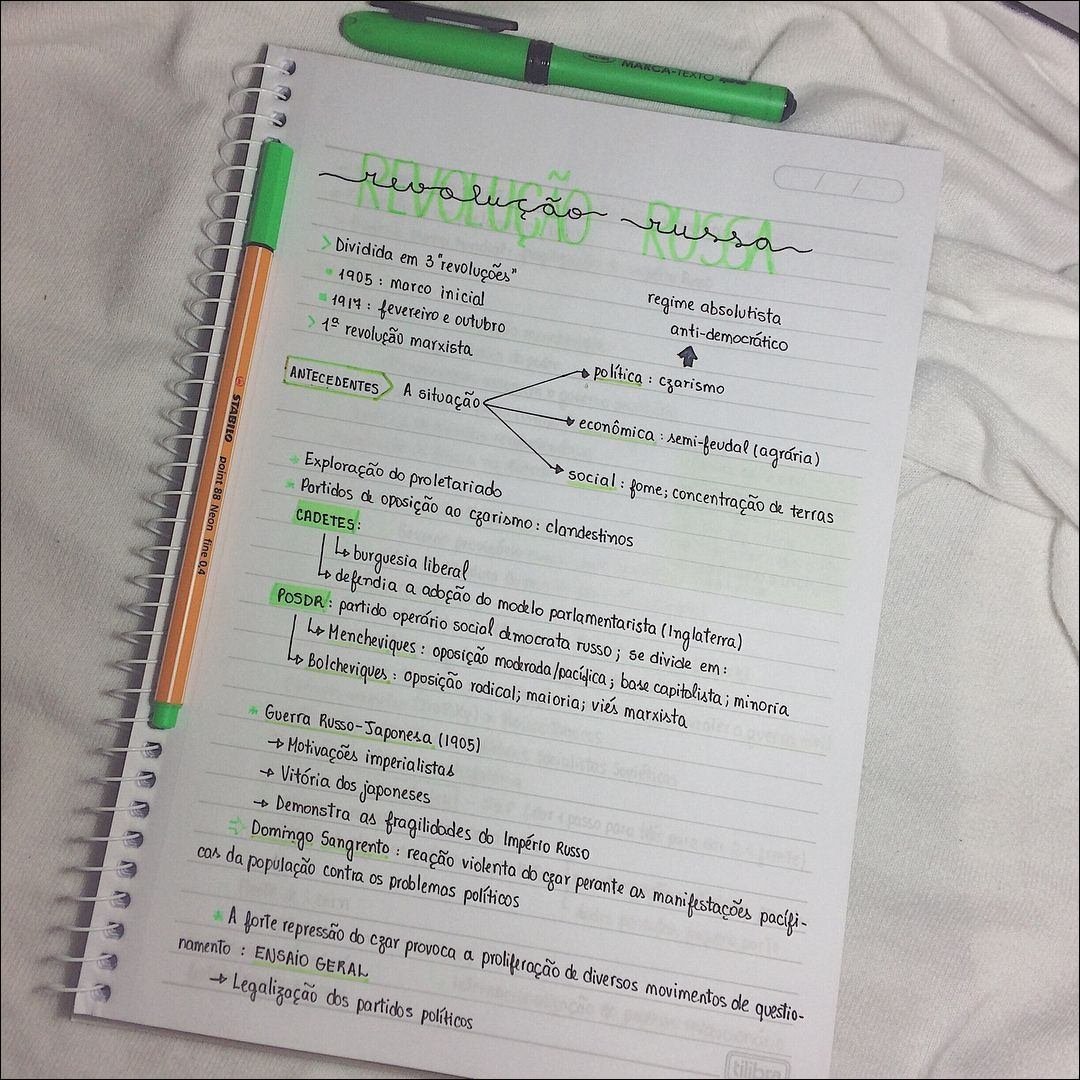 MARCA-TEXTO
REVOLUÇÃO RUSSA
revolução russa
> Dividida em 3 "revoluções"
• 1905 : marco inicial
• 1917 : fevereiro e outubro
> 1ª revolução marxista
regime absolutista
anti-democrático
ANTECEDENTES
A situação
política : czarismo
econômica : semi-feudal (agrária)
social : fome; concentração de terras
* Exploração do proletariado
* Partidos de oposição ao czarismo : clandestinos
CADETES :
↳ burguesia liberal
↳ defendia a adoção do modelo parlamentarista (Inglaterra)
POSDR : partido operário social democrata russo ; se divide em :
↳ Mencheviques : oposição moderada/pacífica ; base capitalista ; minoria
↳ Bolcheviques : oposição radical; maioria; viés marxista
* Guerra Russo-Japonesa (1905)
→ Motivações imperialistas
→ Vitória dos japoneses
→ Demonstra as fragilidades do Império Russo
⇨ Domingo Sangrento : reação violenta do czar perante as manifestações pacífi-
cas da população contra os problemas políticos
* A forte repressão do czar provoca a proliferação de diversos movimentos de questio-
namento : ENSAIO GERAL
→ Legalização dos partidos políticos
STABILO point 88 Neon fine 0,4
tilibra